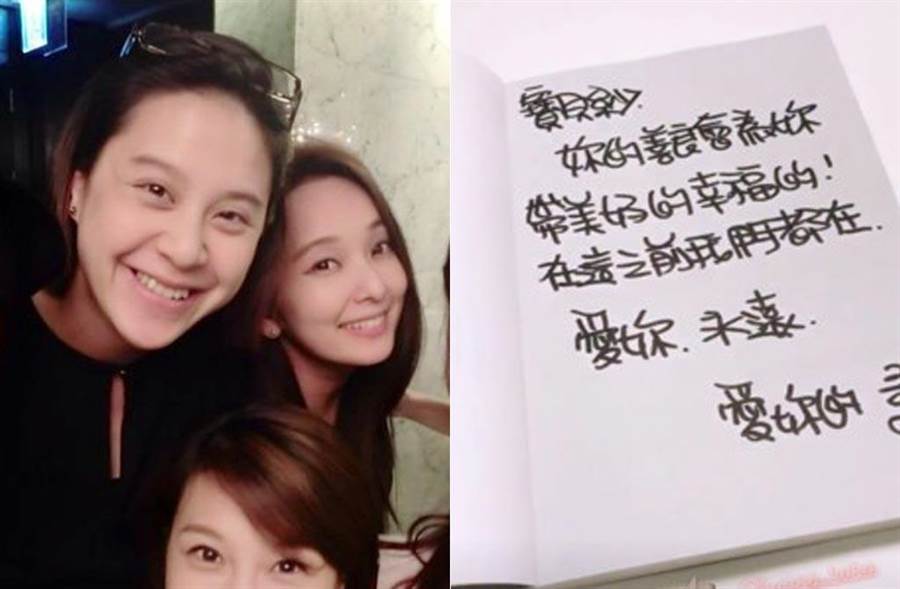 寶貝紗.
妳的善良會為妳
帶美好的幸福的!
在這之前我們都在.
愛妳.永遠.
愛妳的